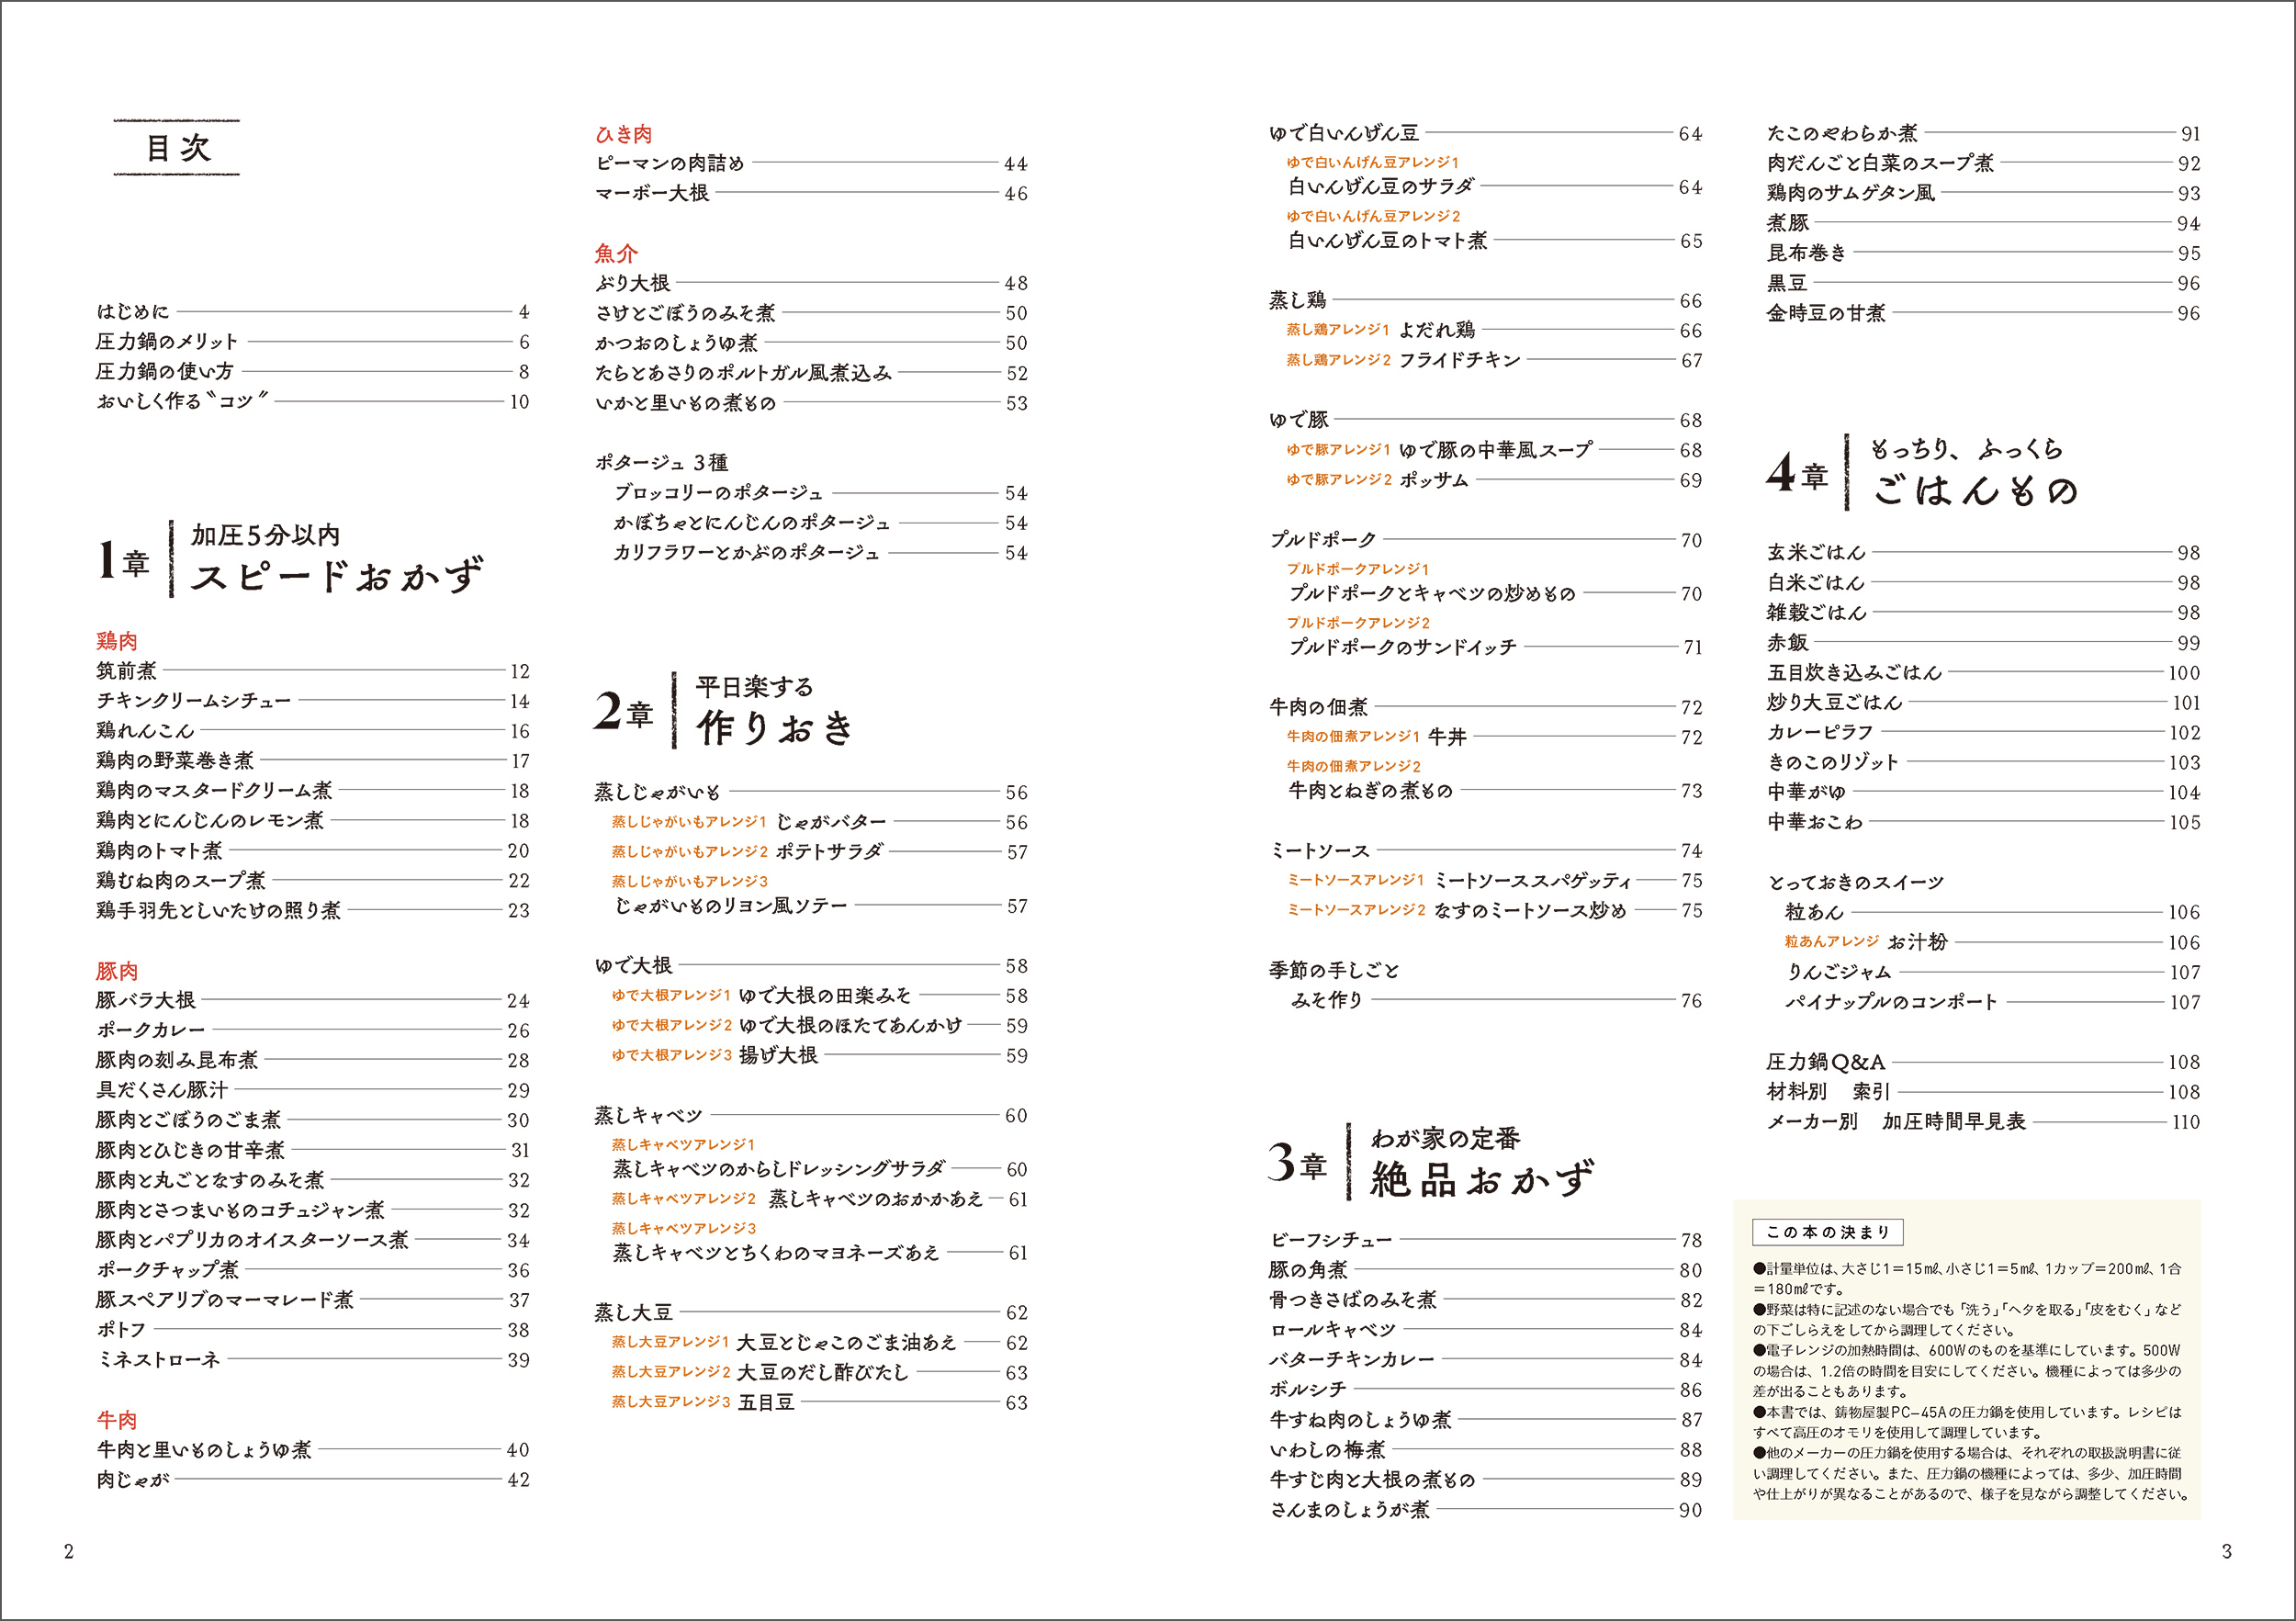 目次
はじめに 4
圧力鍋のメリット 6
圧力鍋の使い方 8
おいしく作る〝コツ〟 10
1章 加圧5分以内
スピードおかず
鶏肉
筑前煮 12
チキンクリームシチュー 14
鶏れんこん 16
鶏肉の野菜巻き煮 17
鶏肉のマスタードクリーム煮 18
鶏肉とにんじんのレモン煮 18
鶏肉のトマト煮 20
鶏むね肉のスープ煮 22
鶏手羽先としいたけの照り煮 23
豚肉
豚バラ大根 24
ポークカレー 26
豚肉の刻み昆布煮 28
具だくさん豚汁 29
豚肉とごぼうのごま煮 30
豚肉とひじきの甘辛煮 31
豚肉と丸ごとなすのみそ煮 32
豚肉とさつまいものコチュジャン煮 32
豚肉とパプリカのオイスターソース煮 34
ポークチャップ煮 36
豚スペアリブのマーマレード煮 37
ポトフ 38
ミネストローネ 39
牛肉
牛肉と里いものしょうゆ煮 40
肉じゃが 42
2
ひき肉
ピーマンの肉詰め 44
マーボー大根 46
魚介
ぶり大根 48
さけとごぼうのみそ煮 50
かつおのしょうゆ煮 50
たらとあさりのポルトガル風煮込み 52
いかと里いもの煮もの 53
ポタージュ 3種
ブロッコリーのポタージュ 54
かぼちゃとにんじんのポタージュ 54
カリフラワーとかぶのポタージュ 54
2章 平日楽する
作りおき
蒸しじゃがいも 56
蒸しじゃがいもアレンジ1 じゃがバター 56
蒸しじゃがいもアレンジ2 ポテトサラダ 57
蒸しじゃがいもアレンジ3
じゃがいものリヨン風ソテー 57
ゆで大根 58
ゆで大根アレンジ1 ゆで大根の田楽みそ 58
ゆで大根アレンジ2 ゆで大根のほたてあんかけ 59
ゆで大根アレンジ3 揚げ大根 59
蒸しキャベツ 60
蒸しキャベツアレンジ1
蒸しキャベツのからしドレッシングサラダ 60
蒸しキャベツアレンジ2 蒸しキャベツのおかかあえ 61
蒸しキャベツアレンジ3
蒸しキャベツとちくわのマヨネーズあえ 61
蒸し大豆 62
蒸し大豆アレンジ1 大豆とじゃこのごま油あえ 62
蒸し大豆アレンジ2 大豆のだし酢びたし 63
蒸し大豆アレンジ3 五目豆 63
ゆで白いんげん豆 64
ゆで白いんげん豆アレンジ1
白いんげん豆のサラダ 64
ゆで白いんげん豆アレンジ2
白いんげん豆のトマト煮 65
蒸し鶏 66
蒸し鶏アレンジ1 よだれ鶏 66
蒸し鶏アレンジ2 フライドチキン 67
ゆで豚 68
ゆで豚アレンジ1 ゆで豚の中華風スープ 68
ゆで豚アレンジ2 ポッサム 69
プルドポーク 70
プルドポークアレンジ1
プルドポークとキャベツの炒めもの 70
プルドポークアレンジ2
プルドポークのサンドイッチ 71
牛肉の佃煮 72
牛肉の佃煮アレンジ1 牛丼 72
牛肉の佃煮アレンジ2
牛肉とねぎの煮もの 73
ミートソース 74
ミートソースアレンジ1 ミートソーススパゲッティ 75
ミートソースアレンジ2 なすのミートソース炒め 75
季節の手しごと
みそ作り 76
3章 わが家の定番
絶品おかず
ビーフシチュー 78
豚の角煮 80
骨つきさばのみそ煮 82
ロールキャベツ 84
バターチキンカレー 84
ボルシチ 86
牛すね肉のしょうゆ煮 87
いわしの梅煮 88
牛すじ肉と大根の煮もの 89
さんまのしょうが煮 90
たこのやわらか煮 91
肉だんごと白菜のスープ煮 92
鶏肉のサムゲタン風 93
煮豚 94
昆布巻き 95
黒豆 96
金時豆の甘煮 96
4章 もっちり、ふっくら
ごはんもの
玄米ごはん 98
白米ごはん 98
雑穀ごはん 98
赤飯 99
五目炊き込みごはん 100
炒り大豆ごはん 101
カレーピラフ 102
きのこのリゾット 103
中華がゆ 104
中華おこわ 105
とっておきのスイーツ
粒あん 106
粒あんアレンジ お汁粉 106
りんごジャム 107
パイナップルのコンポート 107
圧力鍋Q&A 108
材料別 索引 108
メーカー別 加圧時間早見表 110
この本の決まり
●計量単位は、大さじ1=15㎖、小さじ1=5㎖、1カップ=200㎖、1合
=180㎖です。
●野菜は特に記述のない場合でも「洗う」「ヘタを取る」「皮をむく」など
の下ごしらえをしてから調理してください。
●電子レンジの加熱時間は、600Wのものを基準にしています。500W
の場合は、1.2倍の時間を目安にしてください。機種によっては多少の
差が出ることもあります。
●本書では、鋳物屋製PC-45Aの圧力鍋を使用しています。レシピは
すべて高圧のオモリを使用して調理しています。
●他のメーカーの圧力鍋を使用する場合は、それぞれの取扱説明書に従
い調理してください。また、圧力鍋の機種によっては、多少、加圧時間
や仕上がりが異なることがあるので、様子を見ながら調整してください。
3